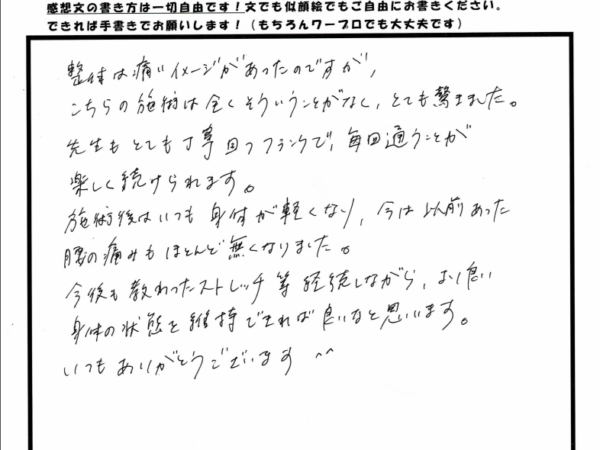 感想文の書き方は一切自由です！文でも似顔絵でもご自由にお書きください。
できれば手書きでお願いします！（もちろんワープロでも大丈夫です）
整体は痛いイメージがあったのですが、
こちらの施術は全くそういうことがなく、とても驚きました。
先生もとても丁寧且つフランクで、毎回通うことが
楽しく続けられます。
施術後はいつも身体が軽くなり、今は以前あった
腰の痛みもほとんど無くなりました。
今後も教わったストレッチ等継続しながら、より良い
身体の状態を維持できれば良いなと思います。
いつもありがとうございます ^^